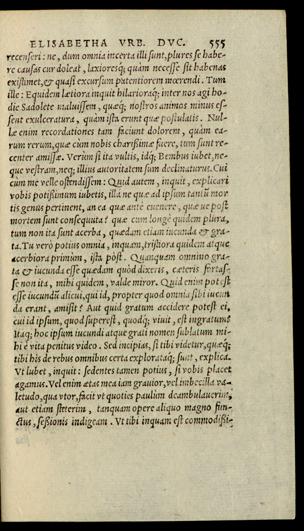 ELISABETHA VRB. DVC. 555
recenseri: ne, dum omnia incerta illi sunt, plures se habe-
re causas cur doleat, laxioresq; quàm necesse sit habenas
existimet, & quasi excursum patentiorem mœrendi. Tum
ille: Equidem lætiora inquit hilarioraq; inter nos agi ho-
die Sadolete maluissem, quæq; nostros animos minus es-
sent exulceratura, quàm ista erunt quæ postulatis. Nul-
læ enim recordationes tam faciunt dolorem, quàm ea-
rum rerum, quæ cùm nobis charissimæ fuere, tum sunt re-
center amissæ. Verùm si ita vultis, idq; Bembus iubet, ne-
que vestram, neq; illius autoritatem sum declinaturus. Cui
cum me velle ostendissem: Quid autem, inquit, explicari
vobis potissimum iubetis, illa ne quæ ad ipsum tantùm mor-
tis genus pertinent, an ea quæ antè euenere, quæ ue post
mortem sunt consequuta? quæ cum longè quidem plura,
tum non ita sunt acerba, quædam etiam iucunda & gra-
ta. Tu verò potius omnia, inquam, tristiora quidem atque
acerbiora primùm, ista pòst. Quanquam omnino gra-
ta & iucunda esse quædam quòd dixeris, cæteris fortas-
se non ita, mihi quidem, valde miror. Quid enim potest
esse iucundi alicui, qui id, propter quod omnia sibi iucun
da erant, amisit? Aut quid gratum accidere potest ei,
cui id ipsum, quod superest, quodq; viuit, est ingratum?
Itaq; hoc ipsum iucundi atque grati nomen sublatum mi-
hi è vita penitus video. Sed incipias, si tibi videtur, quæq;
tibi his de rebus omnibus certa explorataq; sunt, explica.
Vt lubet, inquit: sedentes tamen potius, si vobis placet
agamus. Vel enim ætas mea iam grauior, vel imbecilla va-
letudo, qua vtor, facit vt quoties paulùm deambulauerim,
aut etiam steterim, tanquam opere aliquo magno fun-
ctus, sessionis indigeam. Vt tibi inquam est commodissi-